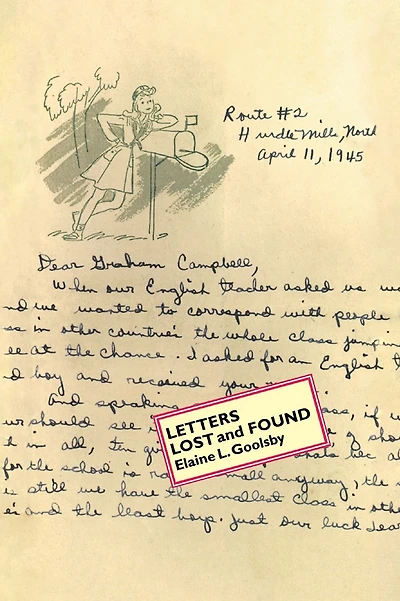 Route #2
Hurdle Mills, North
April 11, 1945
Dear Graham Campbell,
When our English teacher asked us
nd we wanted to correspond with people
es in other countries the whole class jumpin
ee at the chance. I asked for an English
d boy and received your
And speaking ass, if
ur should see
h in all, ten
for the school is small anyway, the
is still we have the smallest class in othe
ei and the least boys. Just our luck
LETTERS
LOST and FOUND
Elaine L. Goolsby